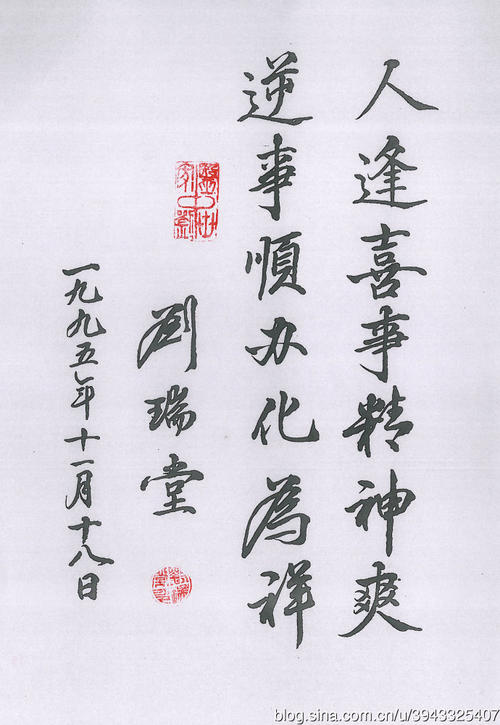 人逢喜事精神爽
逆事順办化為祥
劉瑞堂
一九九五年十一月十八日
blog.sina.com.cn/u/3943325407